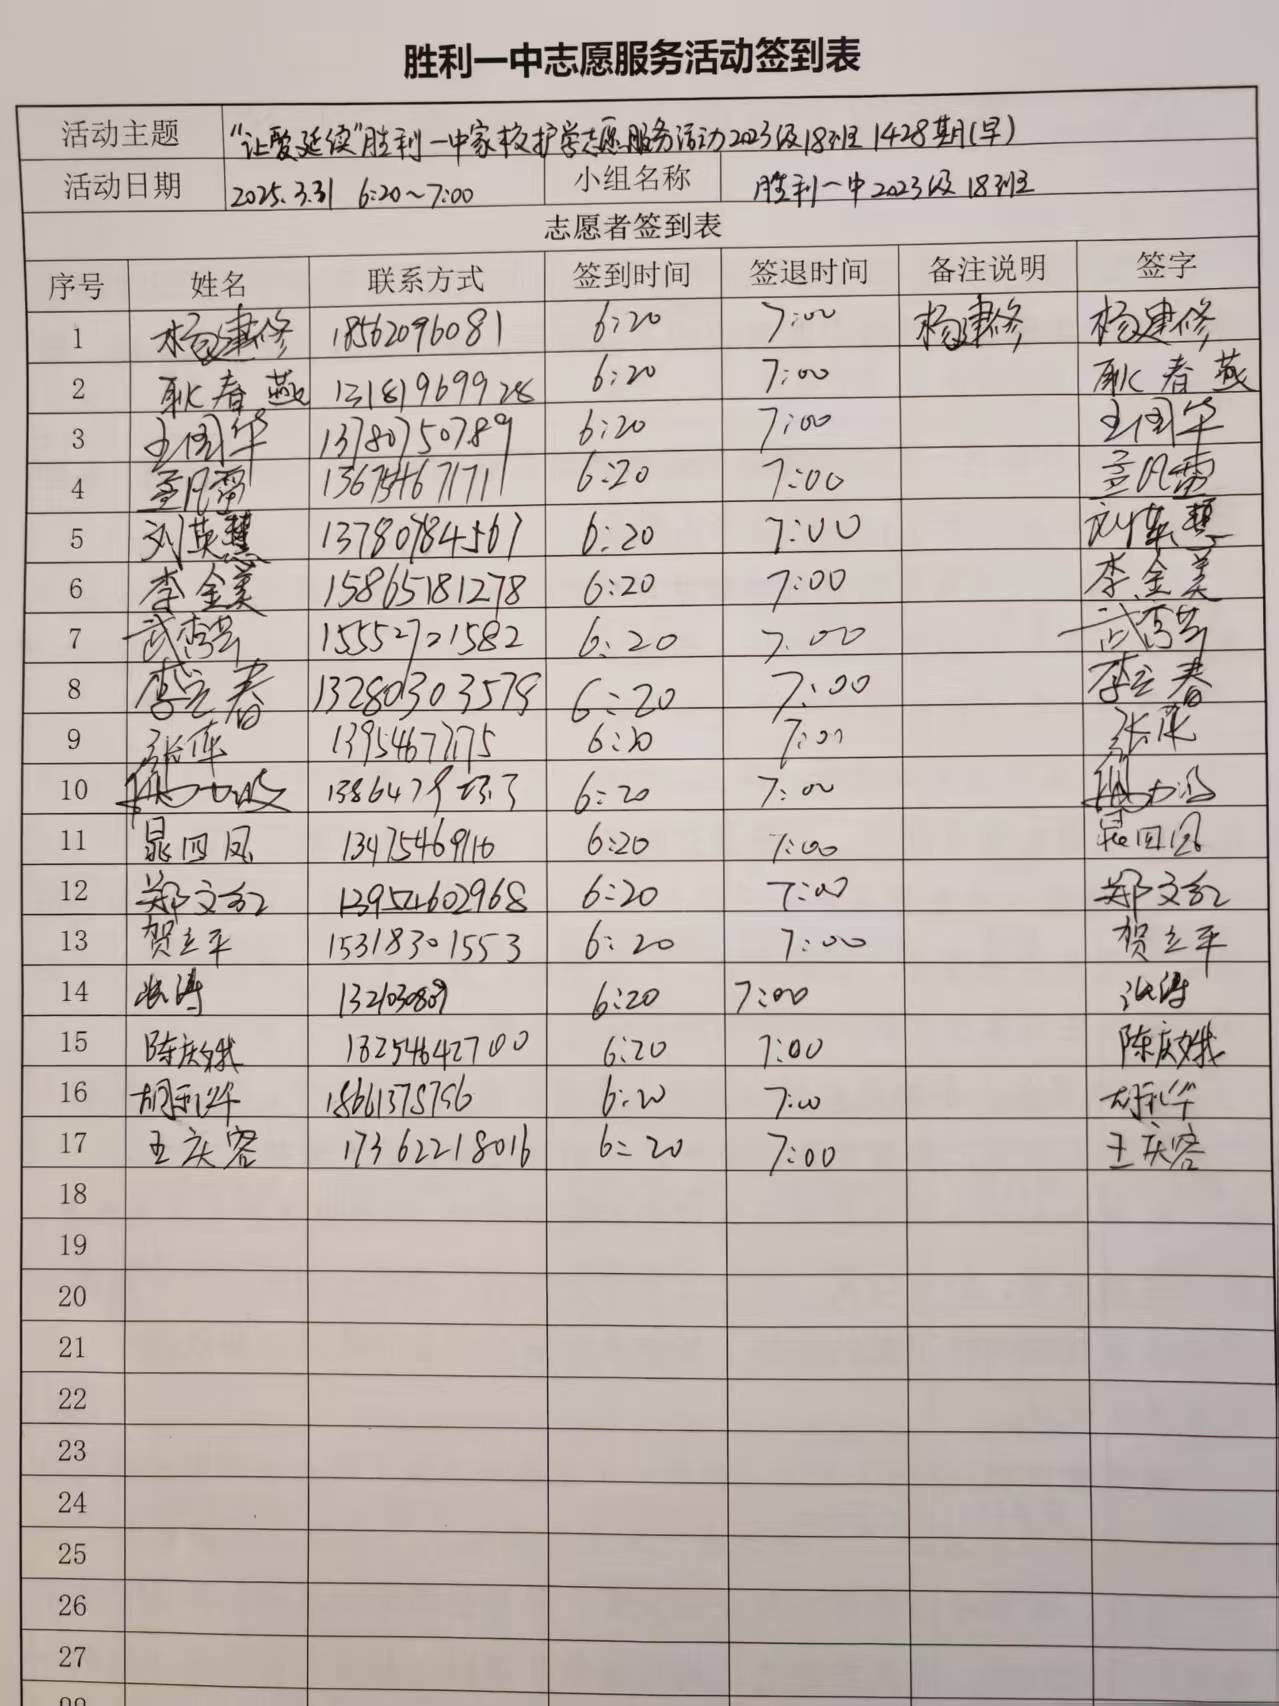 胜利一中志愿服务活动签到表
活动主题 “让爱延续”胜利一中家校护学志愿服务活动2023级18班 1428期(早)
活动日期 2025.3.31 6:20~7:00 小组名称 胜利一中2023级18班
志愿者签到表
序号 姓名 联系方式 签到时间 签退时间 备注说明 签字
1 杨建修 18562096081 6:20 7:00 杨建修 杨建修
2 耿春燕 13181969928 6:20 7:00 耿春燕
3 王国华 13780750789 6:20 7:00 王国华
4 13675467171 6:20 7:00
5 刘英慧 13780784567 6:20 7:00 刘英慧
6 李金美 15865181278 6:20 7:00 李金美
7 武秀芸 15552721582 6:20 7:00 武秀芸
8 李立春 13280303579 6:20 7:00 李立春
9 张萍 13954677175 6:20 7:00 张萍
10 6:20 7:00
11 晁四凤 13475469116 6:20 7:00 晁四凤
12 郑文红 13954602968 6:20 7:00 郑文红
13 贺立平 15318301553 6:20 7:00 贺立平
14 张涛 6:20 7:00 张涛
15 陈庆娥 13254642700 6:20 7:00 陈庆娥
16 胡利华 18661378796 6:20 7:00 胡利华
17 王庆容 17362218016 6:20 7:00 王庆容
18
19
20
21
22
23
24
25
26
27